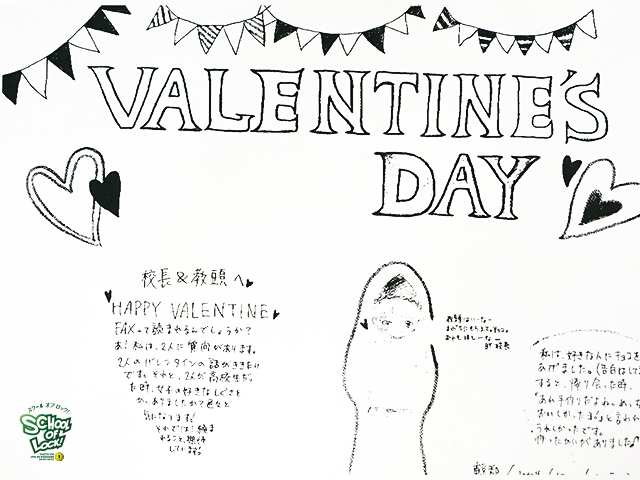 VALENTINE'S
DAY
校長&教頭へ
HAPPY VALENTINE
FAXって読まれるんでしょうか?
あ!私は、2人に質問があります。
2人のバレンタインの話がききたい
です。それと、2人が高校生だっ
た時、女子の好きなしぐさと
か、ありましたか?色々と
気になります!
それでは!
しています。
by 校長
私は、好きな人にチョコを
あげました。(告白は
すると、帰り会った時、
おいしかったよ」と言われ
うれしかったです。
作ったかいがありました
スクール オブ ロック!
SCHOOL
OF
LOCK!